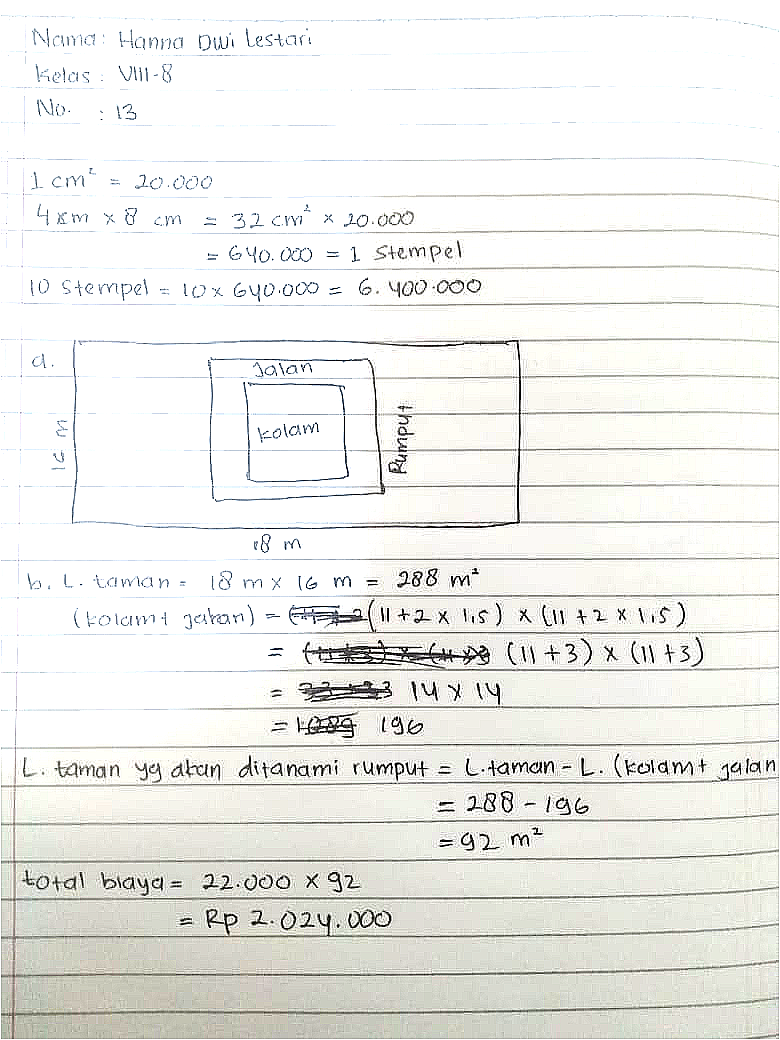 Nama: Hanna Dwi Lestari
Kelas : VIII-8
No. : 13
1 cm² = 20.000
4 cm x 8 cm = 32 cm² x 20.000
= 640.000 = 1 Stempel
10 Stempel = 10 x 640.000 = 6.400.000
a.
Jalan
kolam
Rumput
16 m
18 m
b. L. taman = 18 m x 16 m = 288 m²
(kolam+ jalan) = (11 + 2 x 1,5) x (11 + 2 x 1,5)
= (11 + 3) x (11 + 3)
= 14 x 14
= 196
L. taman yg akan ditanami rumput = L.taman - L. (kolam+ jalan
= 288 - 196
= 92 m²
total biaya = 22.000 x 92
= Rp 2.024.000